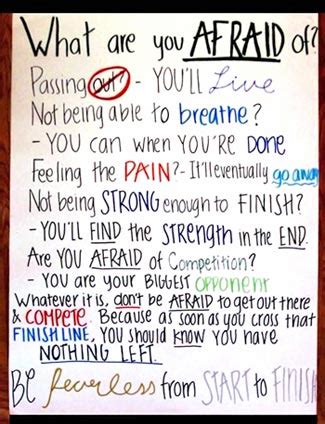 What are you AFRAID of?
Passing out? - YOU'LL Live
Not being able to breathe?
- YOU can when YOU'RE DONE
Feeling the PAIN? - It'll eventually go away
Not being STRONG enough to FINISH?
- YOU'LL FIND the STRENGTH in the END.
Are YOU AFRAID of Competition?
- YOU are your BIGGEST OPPONENT
Whatever it is, don't be AFRAID to get out there
& COMPETE. Because as soon as you cross that
FINISH LINE, YOU should know YOU have
NOTHING LEFT.
BE fearless from START to FINISH